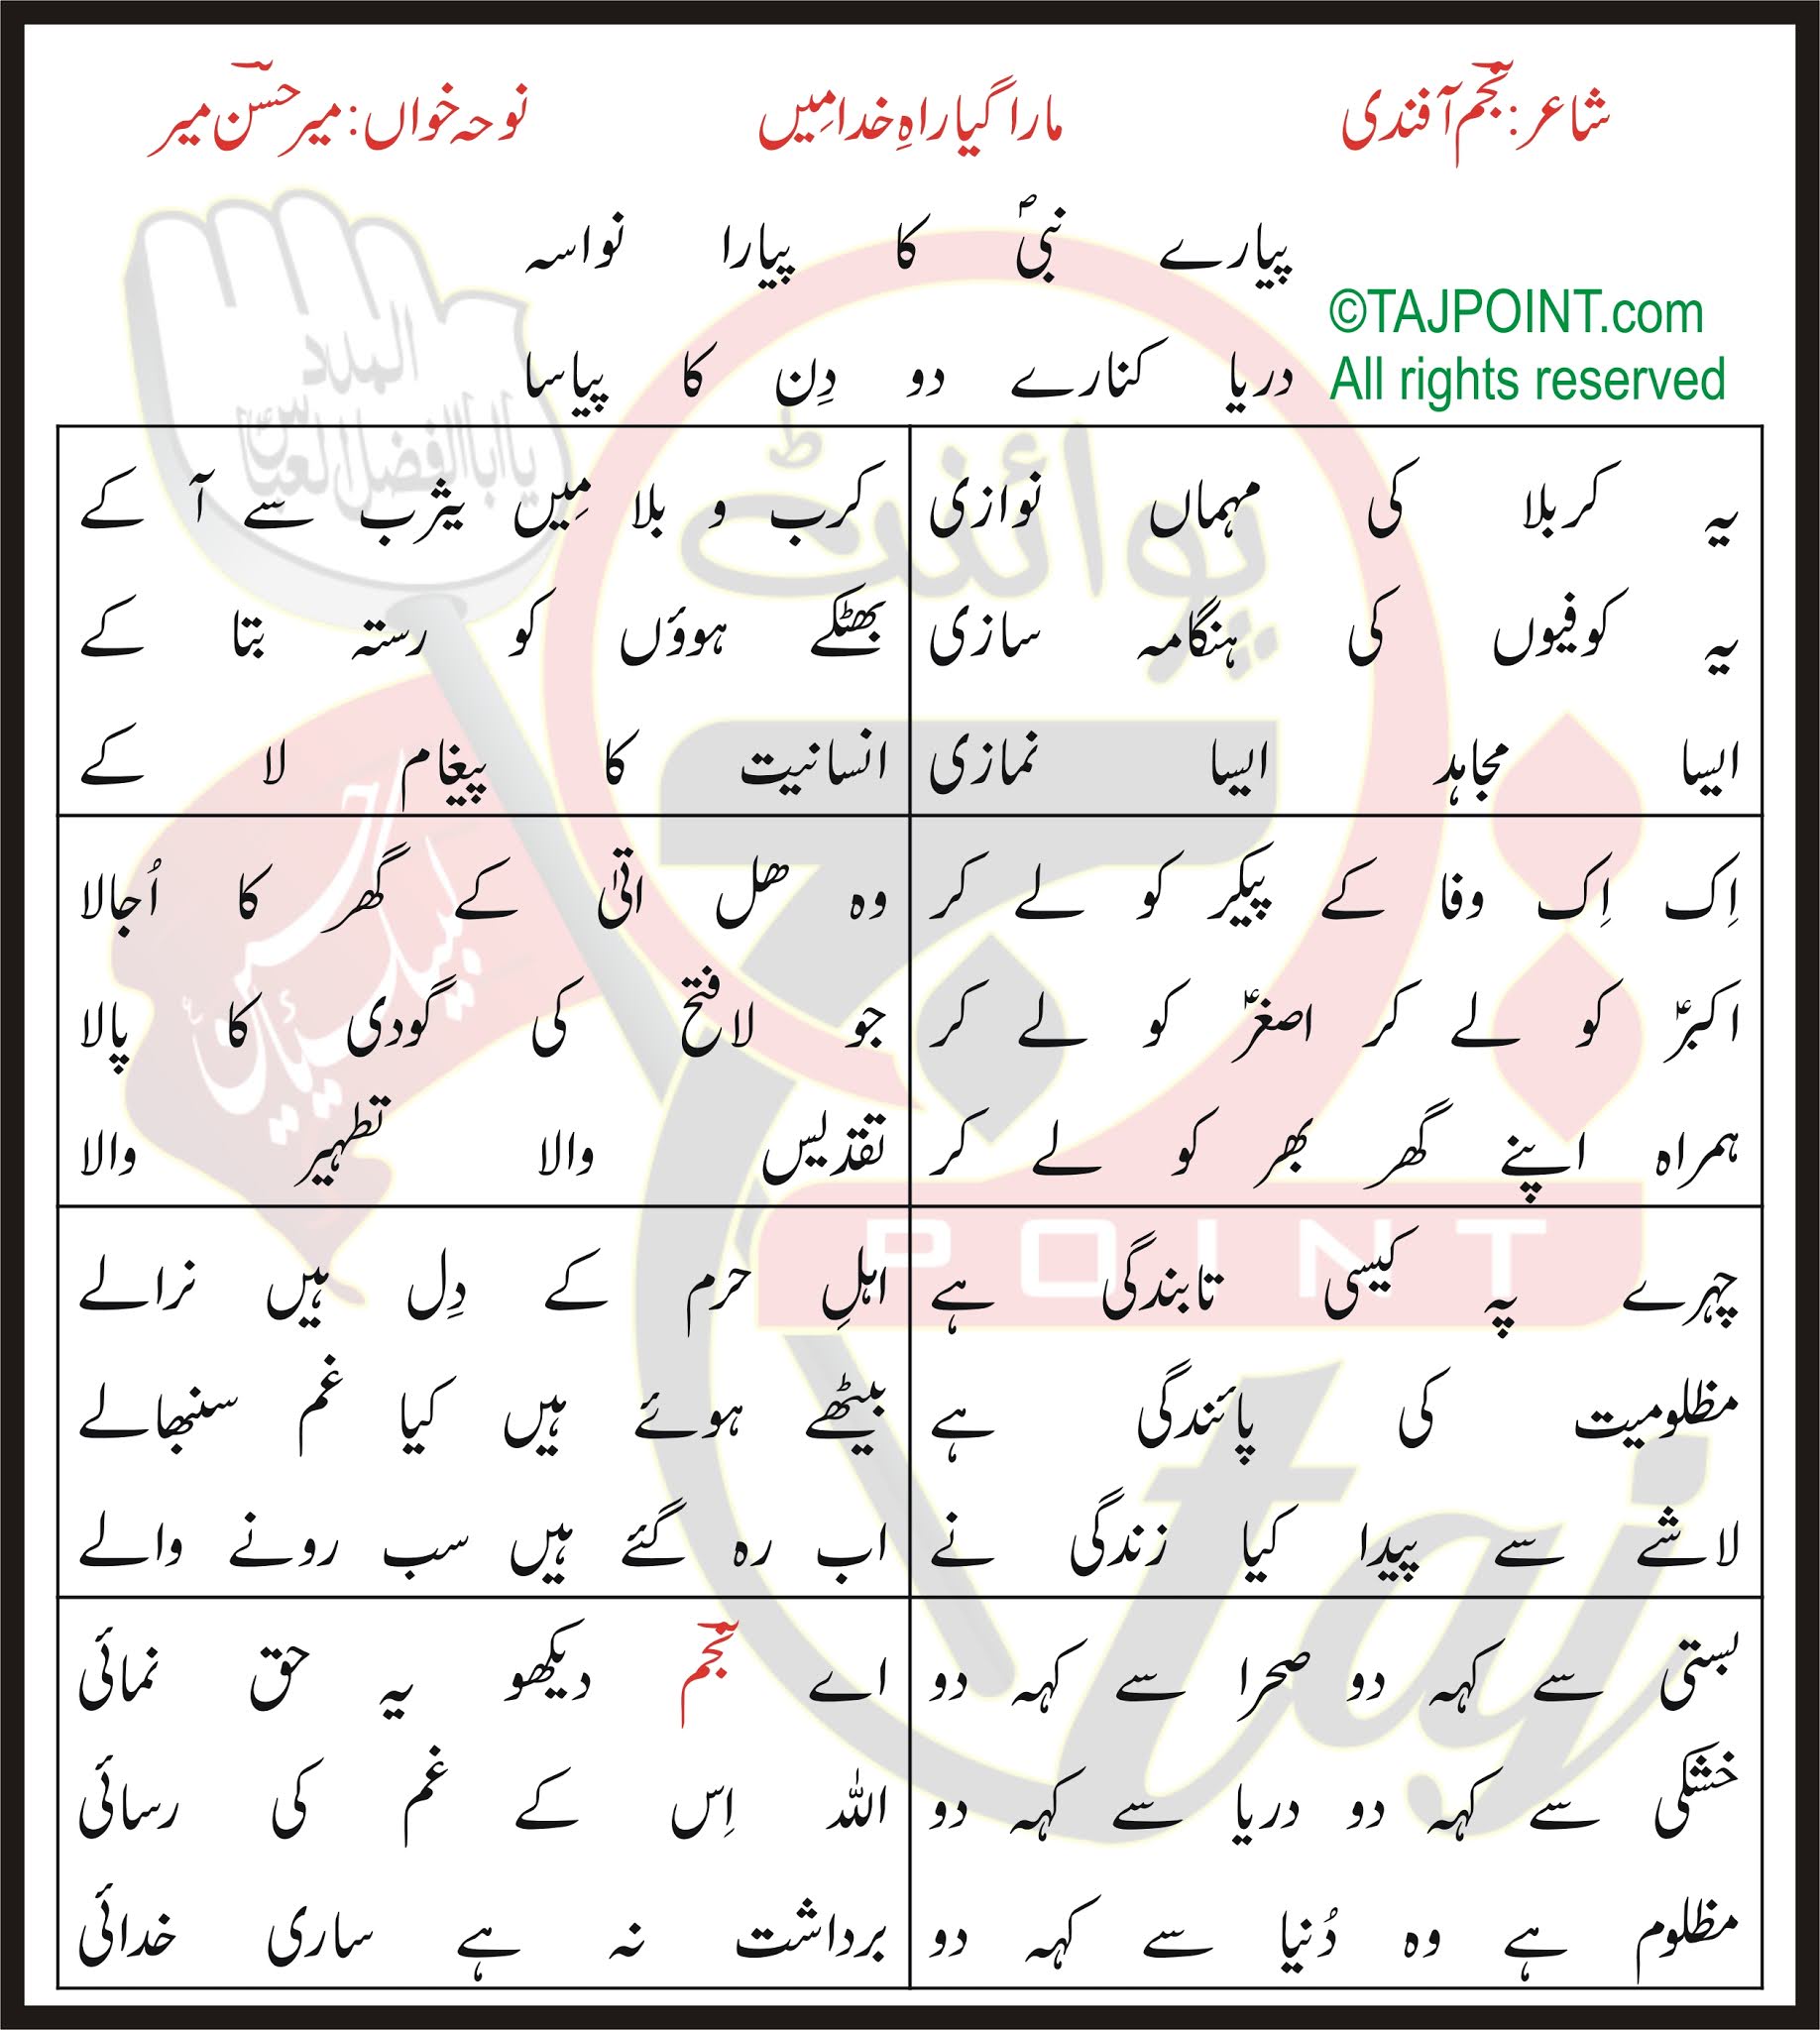 شاعر: نجم آفندی
مارا گیا راہِ خدا مِیں
نوحہ خواں: میر حسن میر
پیارے نبیؐ کا پیارا نواسہ
دریا کنارے دو دِن کا پیاسا
©TAJPOINT.com
All rights reserved
یہ کربلا کی مہماں نوازی
یہ کوفیوں کی ہنگامہ سازی
ایسا مجاہد ایسا نمازی
کرب و بلا مِیں یثرب سے آ کے
بھٹکے ہوؤں کو رستہ بتا کے
انسانیت کا پیغام لا کے
اِک اِک وفا کے پیکر کو لے کر
اکبرؑ کو لے کر اصغرؑ کو لے کر
ہمراہ اپنے گھر بھر کو لے کر
وہ ھل اتیٰ کے گھر کا اُجالا
جو لافتح کی گودی کا پالا
تقدیس والا تطہیر والا
چہرے پہ کیسی تابندگی ہے
مظلومیت کی پائندگی ہے
لاشے سے پیدا کیا زندگی نے
اہلِ حرم کے دِل ہیں نرالے
بیٹھے ہوئے ہیں کیا غم سنبھالے
اب رہ گئے ہیں سب رونے والے
بستی سے کہہ دو صحرا سے کہہ دو
خشکی سے کہہ دو دریا سے کہہ دو
مظلوم ہے وہ دُنیا سے کہہ دو
اے نجم دیکھو یہ حق نمائی
اللہ اِس کے غم کی رسائی
برداشت نہ ہے ساری خدائی
المدد
یا ابالفضل العباس
لبیک یا حسین
پوائنٹ
تاج
POINT
taj